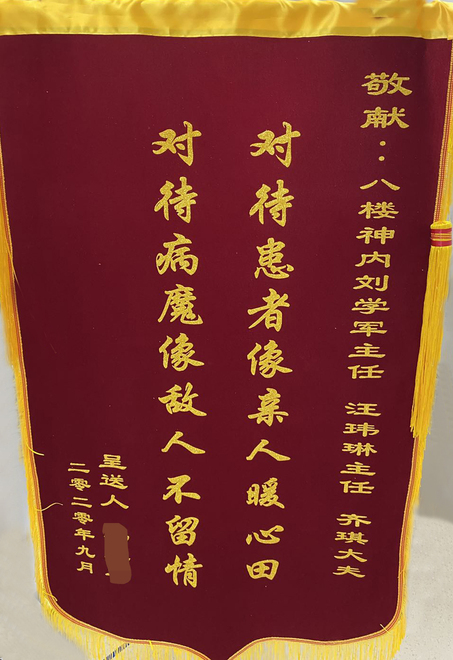 敬献：八楼神内刘学军主任 汪玮琳主任 齐琪大夫
对待患者像亲人暖心田
对待病魔像敌人不留情
呈送人
二零二零年九月